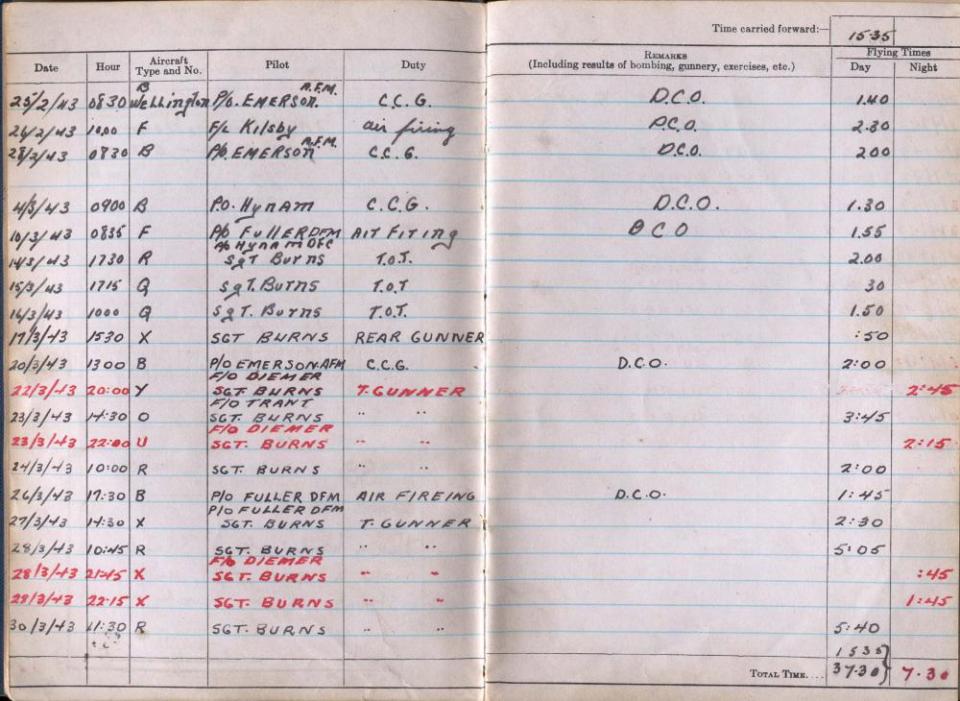 Time carried forward:— 15·35
Date Hour Aircraft Type and No. Pilot Duty REMARKS (Including results of bombing, gunnery, exercises, etc.) Flying Times Day Night
B A.F.M.
25/2/43 0830 Wellington P/O. EMERSON. C.C.G. D.C.O. 1.40
26/2/43 1000 F F/L Kilsby air firing D.C.O. 2.30
A.F.M.
28/2/43 0730 B P/O. EMERSON C.C.G. D.C.O. 200
4/3/43 0900 B P.O. HYNAM C.C.G. D.C.O. 1.30
10/3/43 0835 F P/O FULLER DFM AIR FIRING D C O 1.55
P/O HYNAM DFC
14/3/43 1730 R Sgt Burns T.O.T. 2.00
15/3/43 1715 Q Sgt. Burns T.O.T 30
16/3/43 1000 Q Sgt. Burns T.O.T. 1.50
17/3/43 1530 X SGT BURNS REAR GUNNER :50
20/3/43 1300 B P/O EMERSON AFM C.C.G. D.C.O. 2:00
F/O DIEMER
22/3/43 20:00 Y SGT. BURNS T. GUNNER 2:45
F/O TRANT
23/3/43 14:30 O SGT. BURNS " " 3:45
F/O DIEMER
23/3/43 22:00 U SGT. BURNS " " 2:15
24/3/43 10:00 R SGT. BURNS " " 2:00
26/3/43 17:30 B P/O FULLER DFM AIR FIREING D.C.O. 1:45
P/O FULLER DFM
27/3/43 14:30 X SGT. BURNS T. GUNNER 2:30
28/3/43 10:45 R SGT. BURNS " " 5:05
F/O DIEMER
28/3/43 21:45 X SGT. BURNS " " :45
29/3/43 22:15 X SGT. BURNS " " 1:45
30/3/43 11:30 R SGT. BURNS " " 5:40
1535
TOTAL TIME.... 37·30 7·30